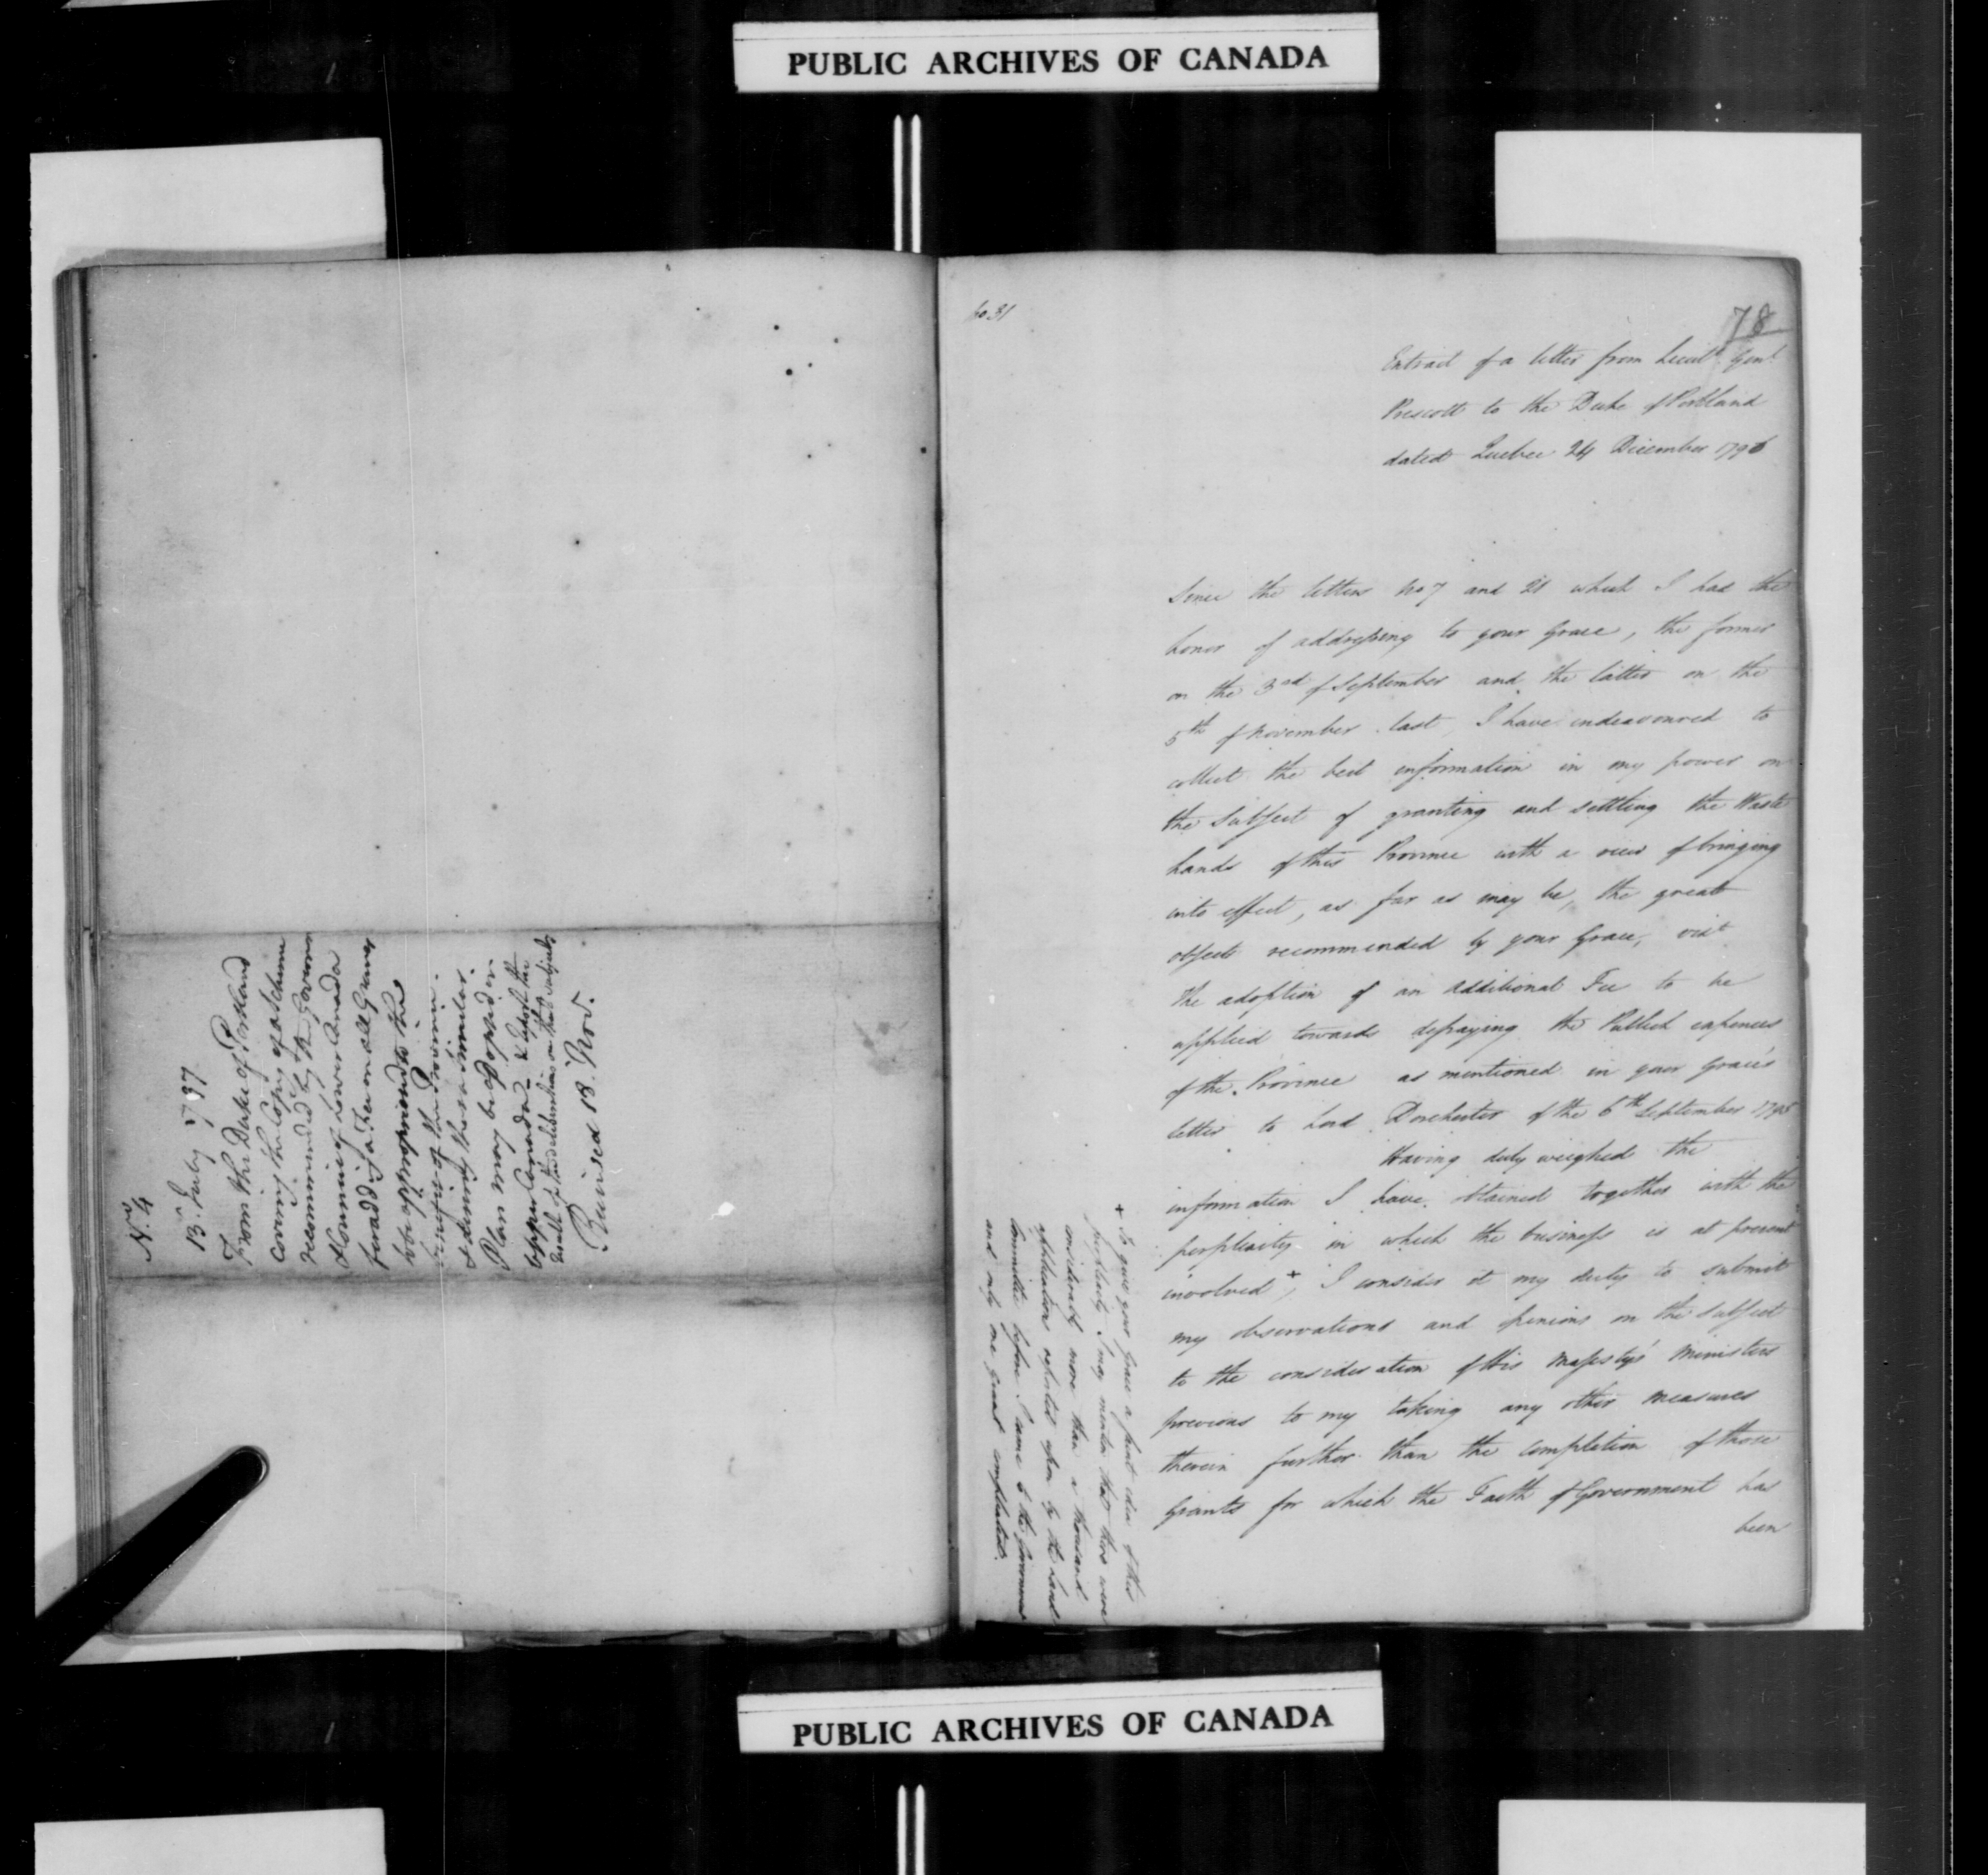 PUBLIC ARCHIVES OF CANADA
No. 4
13th July 1797.
From the Duke of Portland
covering the Copy of a Scheme
recommended by the Governor
& Council of Lower Canada
for adding a Fee on all Grants
to be appropriated to the
benefit of the Province.
& desiring that a similar
Plan may be adopted in
Upper Canada & Report the
result of the deliberations on that subject
Received 18. Nov.
No 31
78
Extract of a letter from Lieut. Genl.
Prescott to the Duke of Portland
dated Quebec 24 December 1796
Since the letters No 7 and 21 which I had the
honor of addressing to your Grace, the former
on the 3rd of September and the latter on the
5th of November last, I have endeavoured to
collect the best information in my power on
the Subject of granting and settling the Waste
Lands of this Province with a view of bringing
into effect, as far as may be, the great
objects recommended by your Grace, vizt
the adoption of an additional Fee to be
applied towards defraying the Publick expences
of the Province as mentioned in your Grace's
letter to Lord Dorchester of the 6th September 1795
Having duly weighed the
information I have obtained together with the
perplexity in which the business is at present
involved +, I consider it my duty to submit
my observations and opinions on the subject
to the consideration of His Majesty's Ministers
previous to my taking any other measures
therein further than the completion of those
Grants for which the Faith of Government has
been
+ To give your Grace a faint idea of this
perplexity I may mention that there were
considerably more than a thousand
applications reported upon by the Land
Committee before I came to the Government
and only one grant completed.
PUBLIC ARCHIVES OF CANADA